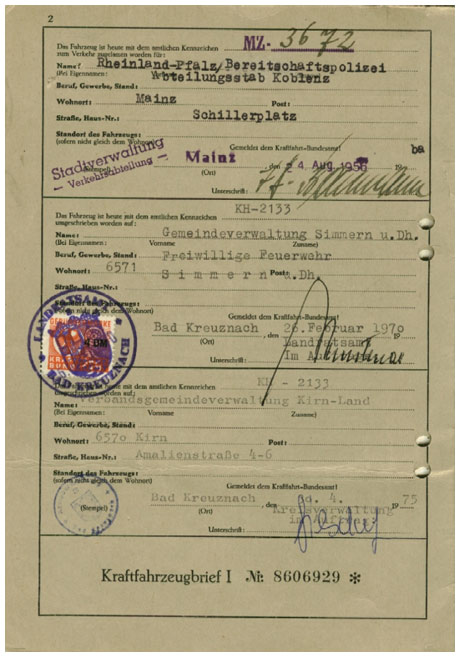 2
Das Fahrzeug ist heute mit dem amtlichen Kennzeichen MZ-3672
zum Verkehr zugelassen worden für:
Name: Rheinland-Pfalz/Bereitschaftspolizei
(Bei Eigennamen: Abteilungsstab Koblenz
Beruf, Gewerbe, Stand:
Wohnort: Mainz Post:
Straße, Haus-Nr.: Schillerplatz
Standort des Fahrzeugs:
(sofern nicht gleich dem Wohnort) Gemeldet dem Kraftfahrt-Bundesamt ba
Stadtverwaltung
– Verkehrsabteilung –
Mainz, den 24. Aug. 1956 19
(Ort)
Unterschrift:
Das Fahrzeug ist heute mit dem amtlichen Kennzeichen KH-2133
umgeschrieben worden auf:
Name: Gemeindeverwaltung Simmern u.Dh.
(Bei Eigennamen: Vorname Zuname)
Beruf, Gewerbe, Stand: Freiwillige Feuerwehr
Wohnort: 6571 Simmern u.Dh. Post:
Straße, Haus-Nr.:
Standort des Fahrzeugs:
(sofern nicht gleich dem Wohnort) Gemeldet dem Kraftfahrt-Bundesamt
Bad Kreuznach, den 26.Februar 1970
(Ort) Landratsamt
Unterschrift: Im
LANDRATSAMT
4 DM
BAD KREUZNACH
Das Fahrzeug ist heute mit dem amtlichen Kennzeichen KH - 2133
umgeschrieben worden auf:
Name: Verbandsgemeindeverwaltung Kirn-Land
(Bei Eigennamen: Vorname Zuname)
Beruf, Gewerbe, Stand:
Wohnort: 6570 Kirn Post:
Straße, Haus-Nr.: Amalienstraße 4-6
Standort des Fahrzeugs:
(sofern nicht gleich dem Wohnort) Gemeldet dem Kraftfahrt-Bundesamt
Bad Kreuznach, den 4. 1975
(Stempel) (Ort) Kreisverwaltung
Unterschrift:
Kraftfahrzeugbrief I Nr. 8606929 *